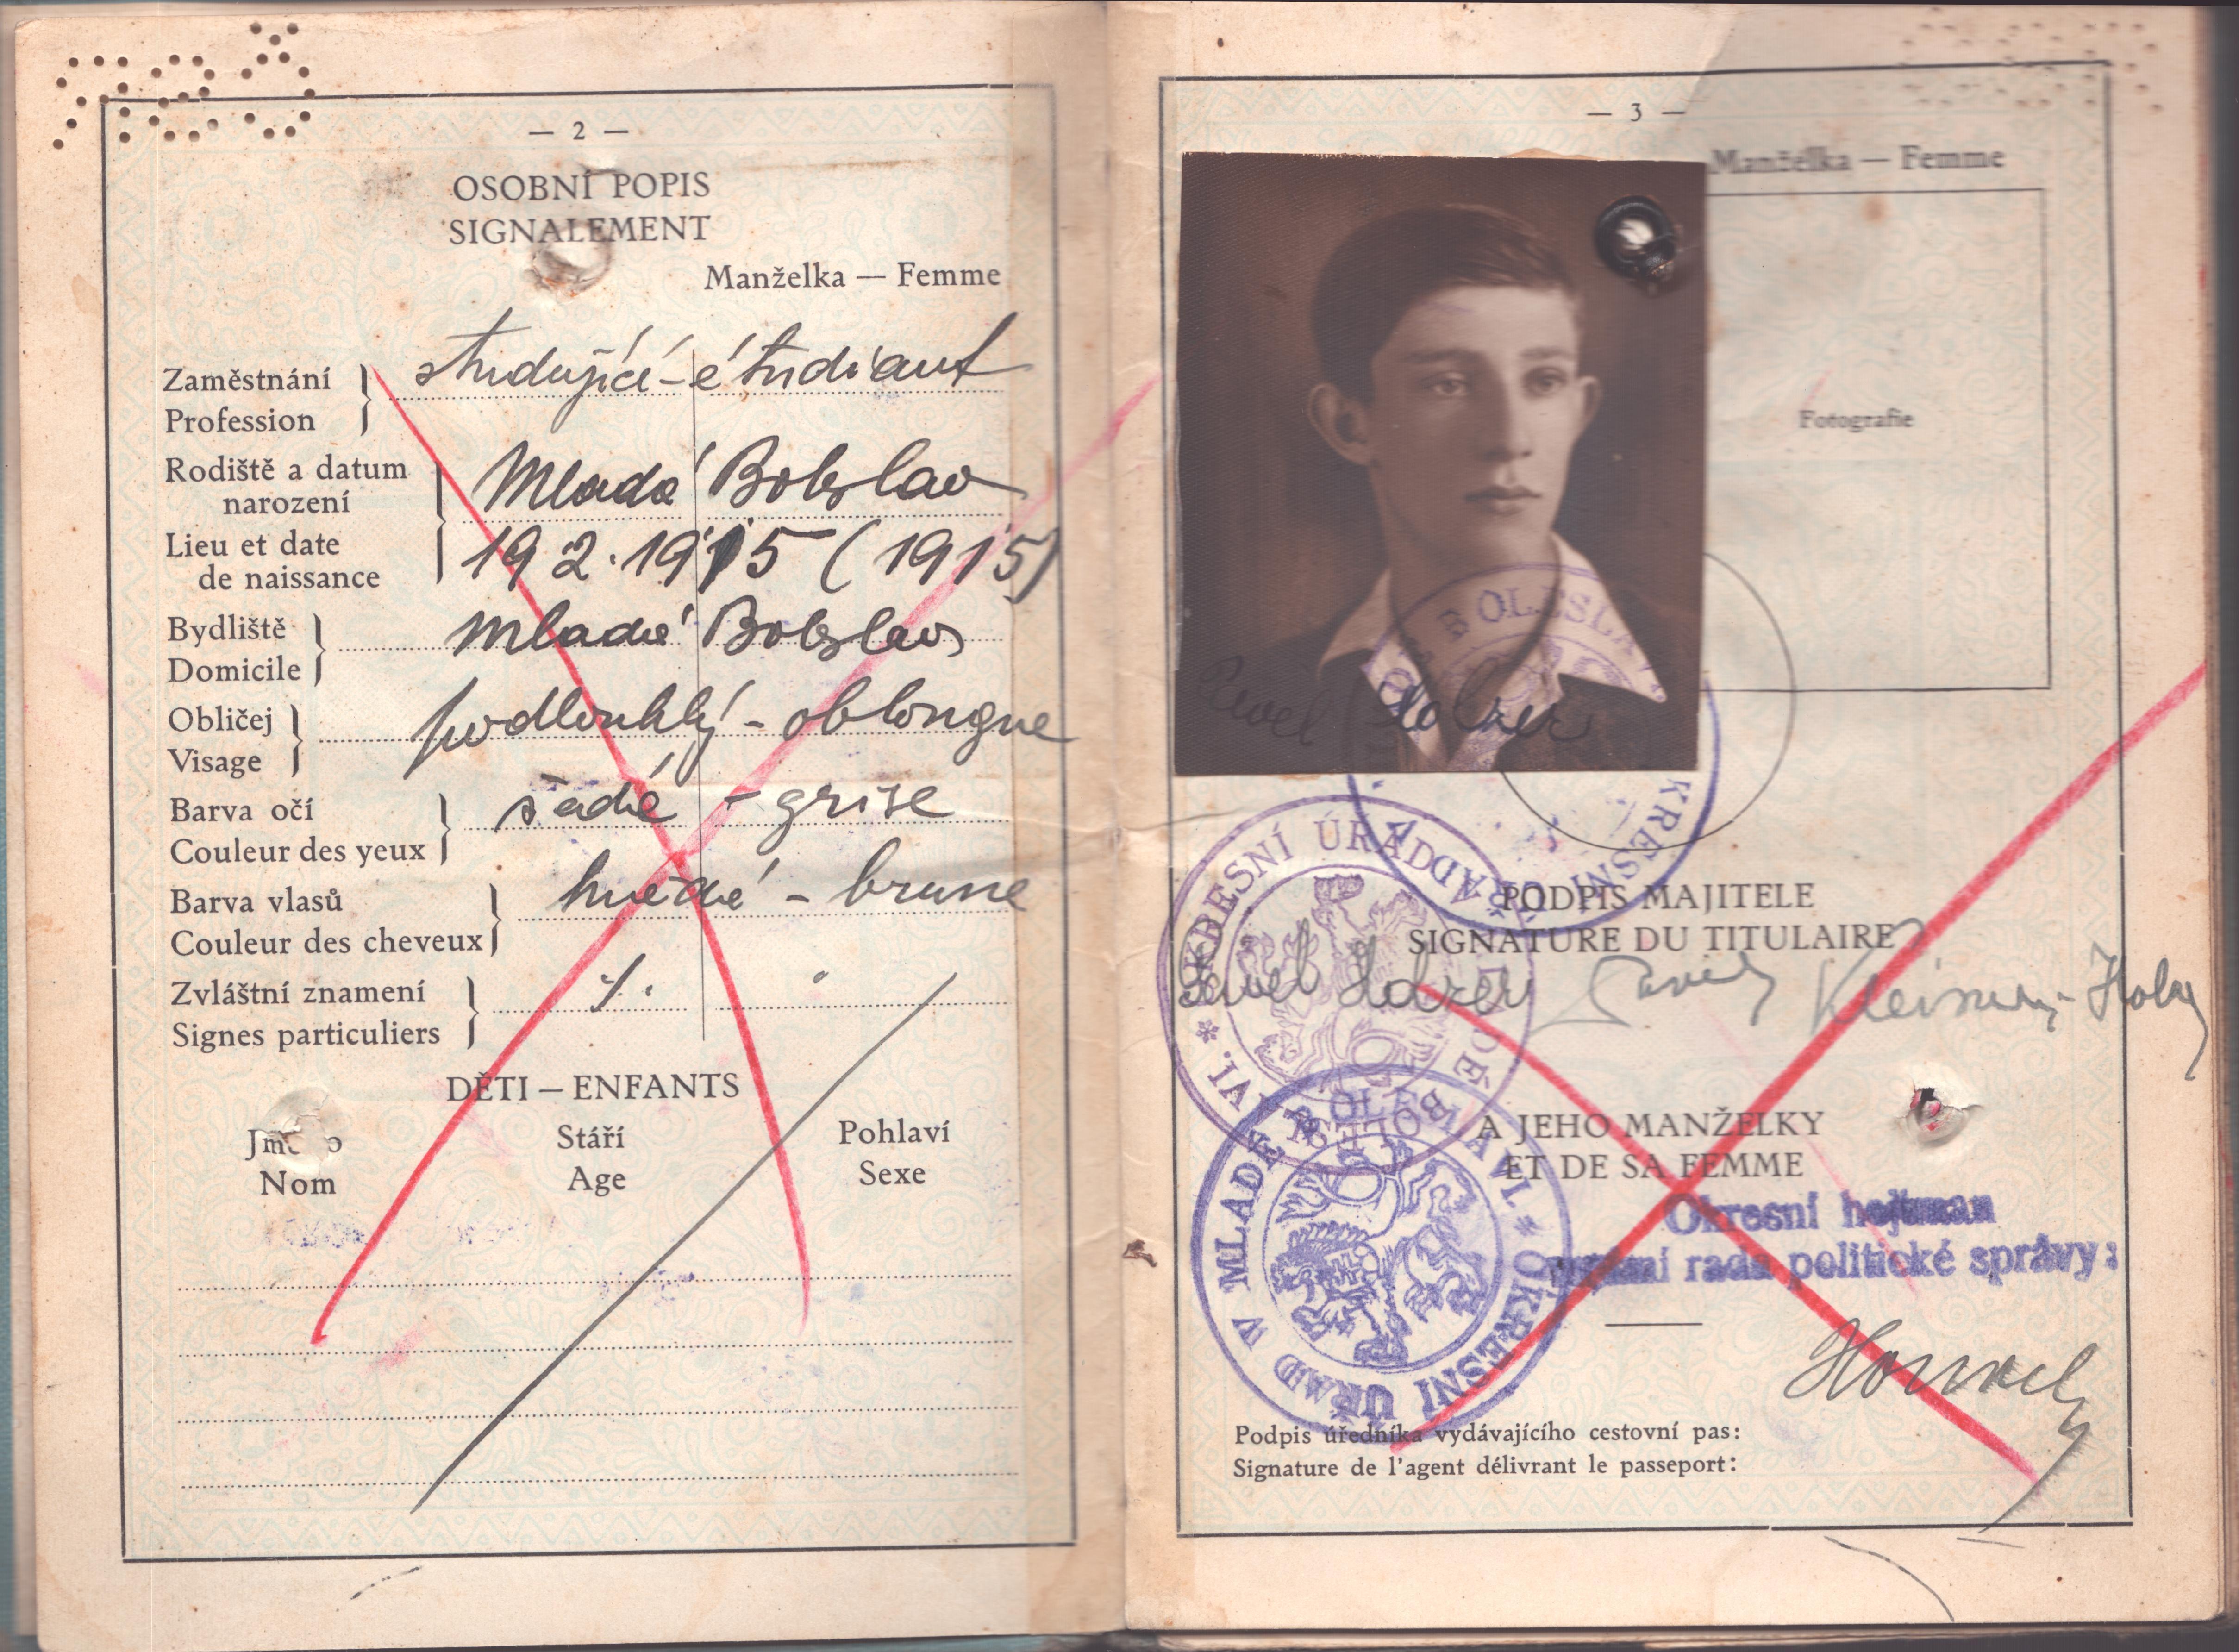 — 2 —
OSOBNÍ POPIS
SIGNALEMENT
Manželka — Femme
Zaměstnání
Profession
studující - étudiant
Rodiště a datum
narození
Mladá Boleslav
Lieu et date
de naissance
19 2. 1915 (1915)
Bydliště
Domicile
Mladá Boleslav
Obličej
Visage
podlouhlý - oblongue
Barva očí
Couleur des yeux
šedé - grise
Barva vlasů
Couleur des cheveux
hnědé - brune
Zvláštní znamení
Signes particuliers
DĚTI — ENFANTS
Jm o Stáří Pohlaví
Nom Age Sexe
— 3 —
Manželka — Femme
Fotografie
Pavel Holzer
OKRESNÍ ÚŘAD
PODPIS MAJITELE
SIGNATURE DU TITULAIRE
Pavel Holzer Pavel
A JEHO MANŽELKY
ET DE SA FEMME
OKRESNÍ ÚŘAD V MLADÉ BOLESLAVI.
Okresní hejtman
rada politické správy:
Podpis úředníka vydávajícího cestovní pas:
Signature de l'agent délivrant le passeport: